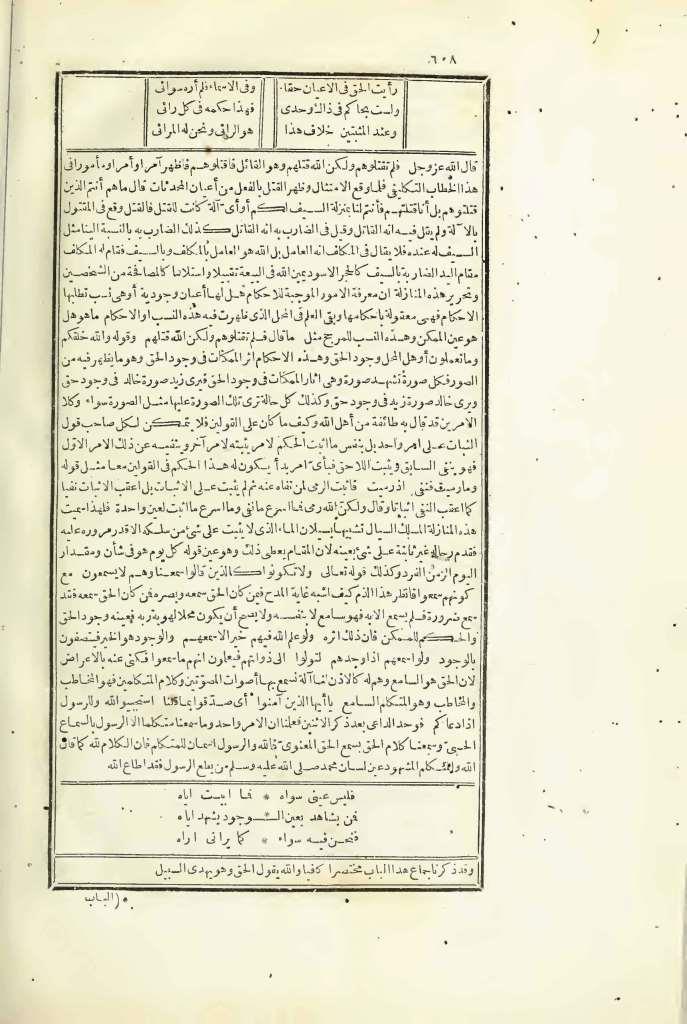 ٦٠٨
رأيت الحق في الاعيان حقا وفي الاسماء فلم أره سوائي
ولست بحاكم في ذاك وحدي فهذا حكمه في كل رائي
وعند المثبتين خلاف هذا هو الرائي ونحن له المرائي
قال الله عز وجل فلم تقتلوهم ولكن الله قتلهم وهو القائل فاقتلوهم فأظهر آمرا وأمرا ومأمورا في
هذا الخطاب التكليفي فلما وقع الامتثال وظهر القتل بالفعل من أعيان المحدثات قال ما هم أنتم الذين
قتلتموهم بل أنا قتلتهم فأنتم لنا بمنزلة السيف لكم أو أي آلة كانت للقتل فالقتل وقع في المقتول
بالآلة ولم يقل فيه انه القاتل وقيل في الضارب به انه القاتل كذلك الضارب به بالنسبة الينا مثل
السيف له عنده فلا يقال في المكلف انه العامل بل الله هو العامل بالمكلف وبالسيف فقام له المكلف
مقام اليد الضاربة بالسيف كالحجر الاسود يمين الله في البيعة تقبيلا واستلاما كالمصافحة من الشخصين
وتحرير هذه المنازلة ان معرفة الامور الموجبة للاحكام هل لها أعيان وجودية أو هي نسب تطلبها
الاحكام فهي معقولة بأحكامها وبقي العلم في المحل الذي ظهرت فيه هذه النسب او الاحكام ما هو هل
هو عين الممكن وهذه النسب للمرجح مثل ما قال فلم تقتلوهم ولكن الله قتلهم وقوله والله خلقكم
وما تعملون أو هل المحل وجود الحق وهذه الاحكام اثر الممكنات في وجود الحق وهو ما يظهر فيه من
الصور فكل صورة تشهد صورة وهي اثار الممكنات في وجود الحق فيرى زيد صورة خالد في وجود حق
ويرى خالد صورة زيد في وجود حق وكذلك كل حالة ترى تلك الصورة عليها مثل الصورة سواء وكلا
الامرين قد قال به طائفة من أهل الله وكيف ما كان على القولين فلا يتمكن لكل صاحب قول
الثبات على امر واحد بل بنفس ما اثبت الحكم لامر يثبته لامر آخر وينفيه عن ذلك الامر الاول
فهو ينفي السابق ويثبت اللاحق فبأي امر بدأ يكون له هذا الحكم في القولين معا مثل قوله
وما رميت فنفى اذ رميت فاثبت الرمي لمن نفاه عنه ثم لم يثبت على الاثبات بل اعقب الاثبات نفيا
كما اعقب النفي اثباتا وقال ولكن الله رمى فما اسرع ما نفى وما اسرع ما اثبت لعين واحدة فلهذا سميت
هذه المنازلة المسلك السيال تشبيها بسيلان الماء الذي لا يثبت على شئ من مسلكه الا قدر مروره عليه
فقدم رجاله غير ثابتة على شئ بعينه لان المقام يعطي ذلك وهو عين قوله كل يوم هو في شأن ومقدار
اليوم الزمن الفرد وكذلك قوله تعالى ولا تكونوا كالذين قالوا سمعنا وهم لا يسمعون مع
كونهم سمعوا فانظر هذا الذم كيف اشبه غاية المدح فمن كان الحق سمعه وبصره فمن كان الحق سمعه فقد
سمع ضرورة فلم يسمع الا به فهو سامع لا بنفسه ولا يصح أن يكون محلا لهوية ربه فعينه وجود الحق
والحكم للممكن فان ذلك اثره ولو علم الله فيهم خيرا لاسمعهم والوجود هو الخير فيتصفون
بالوجود ولو اسمعهم اذ اوجدهم لتولوا الى ذواتهم فيعلمون انهم ما سمعوا فكنى عنه بالاعراض
لان الحق هو السامع وهم له كالاذن لنا آلة نسمع بها أصوات المصوتين وكلام المتكلمين فهو المخاطب
والمخاطب وهو المتكلم السامع يا أيها الذين آمنوا أي صدقوا بما قلنا استجيبوا لله وللرسول
اذا دعاكم فوحد الداعي بعد ذكر الاثنين فعلمنا ان الامر واحد وما سمعنا متكلما الا الرسول بالسماع
الحسي وسمعنا كلام الحق بسمع الحق المعنوي فالله والرسول اسمان للمتكلم فان الكلام لله كما قال
الله والمتكلم المشهود عين لسان محمد صلى الله عليه وسلم من يطع الرسول فقد اطاع الله
فليس عيني سواه * فما ابيت اياه
فمن يشاهد بعين الوجود يشهد اياه
فنحن فيه سواء * كما يراني اراه
وقد ذكرنا جماع هذا الباب مختصرا كافيا والله يقول الحق وهو يهدي السبيل
(الباب